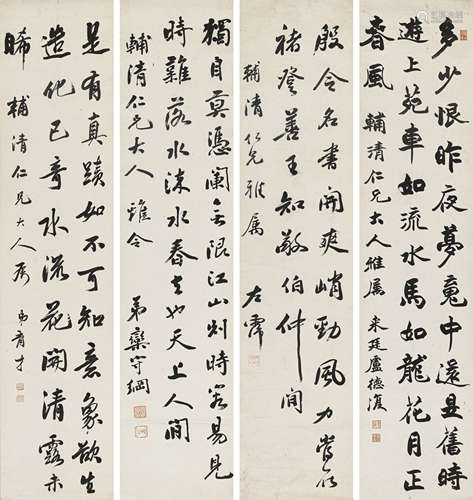 多少恨昨夜夢魂中還是舊時
遊上苑車如流水馬如龍花月正
春風 輔清仁兄大人雅屬 來廷盧德
殷令名書開爽峭勁風力
褚登善王知敬伯仲間
輔清仁兄雅屬 左霈
獨自莫憑闌無限江山別時容易見
時難落水流水春去也天上人間
輔清仁兄大人雅令 弟欒守綱
是有真蹟如不可知意象欲生
造化已奇水流花開清露未
晞 輔清仁兄大人屬